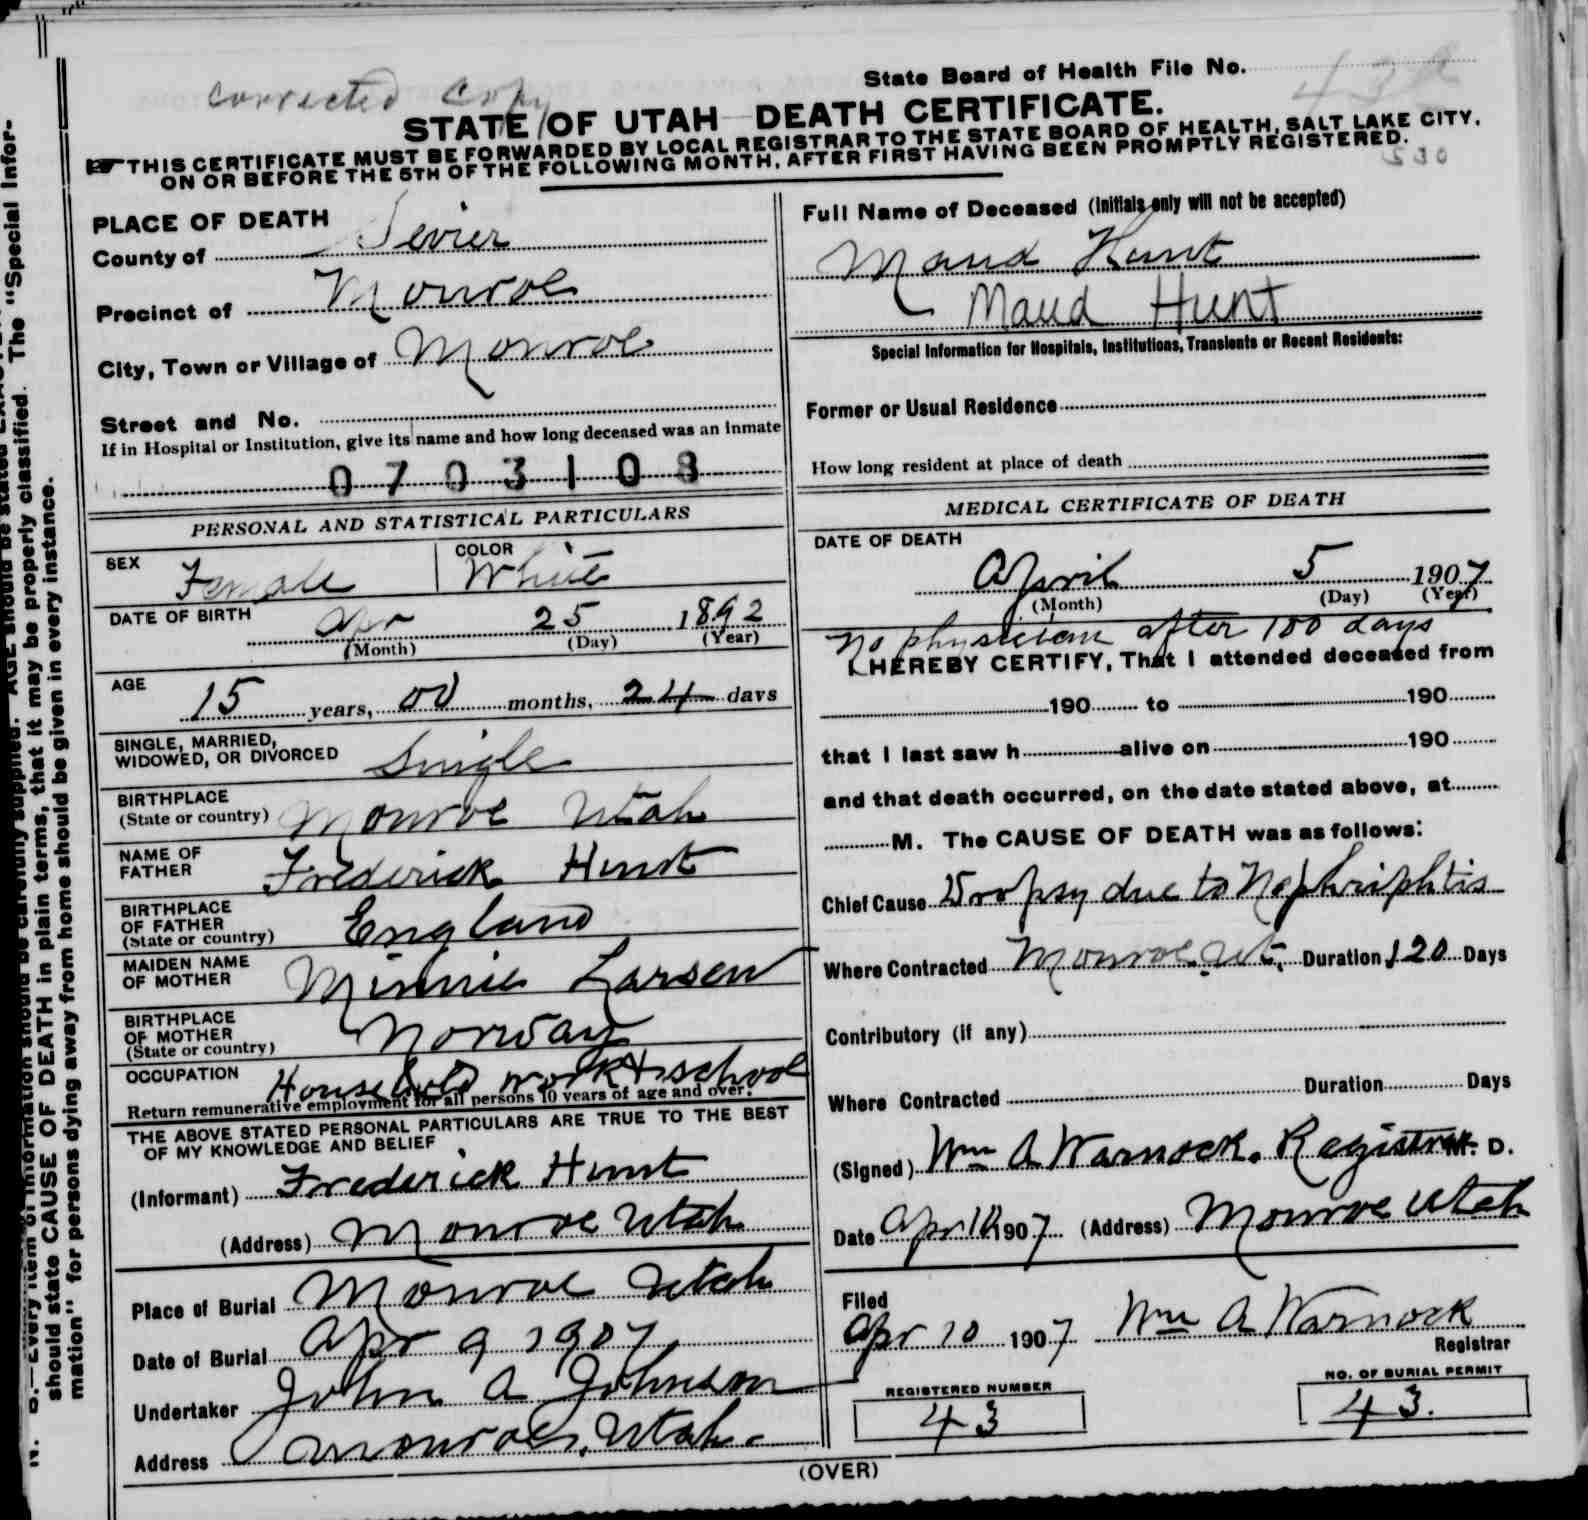 State Board of Health File No. 43
corrected copy
STATE OF UTAH DEATH CERTIFICATE.
THIS CERTIFICATE MUST BE FORWARDED BY LOCAL REGISTRAR TO THE STATE BOARD OF HEALTH, SALT LAKE CITY,
ON OR BEFORE THE 5TH OF THE FOLLOWING MONTH, AFTER FIRST HAVING BEEN PROMPTLY REGISTERED.
530
PLACE OF DEATH
County of Sevier
Precinct of Monroe
City, Town or Village of Monroe
Street and No.
If in Hospital or Institution, give its name and how long deceased was an inmate
0703108
PERSONAL AND STATISTICAL PARTICULARS
SEX Female COLOR White
DATE OF BIRTH Apr 25 1892
(Month) (Day) (Year)
AGE 15 years, 00 months, 24 days
SINGLE, MARRIED,
WIDOWED, OR DIVORCED Single
BIRTHPLACE
(State or country) Monroe Utah
NAME OF
FATHER Frederick Hunt
BIRTHPLACE
OF FATHER
(State or country) England
MAIDEN NAME
OF MOTHER Minnie Larsen
BIRTHPLACE
OF MOTHER
(State or country) Norway
OCCUPATION Household work & school
Return remunerative employment for all persons 10 years of age and over.
THE ABOVE STATED PERSONAL PARTICULARS ARE TRUE TO THE BEST
OF MY KNOWLEDGE AND BELIEF
(Informant) Frederick Hunt
(Address) Monroe Utah
Place of Burial Monroe Utah
Date of Burial Apr 9 1907
Undertaker John A Johnson
Address Monroe, Utah.
Full Name of Deceased (Initials only will not be accepted)
Maud Hunt
Maud Hunt
Special Information for Hospitals, Institutions, Transients or Recent Residents:
Former or Usual Residence
How long resident at place of death
MEDICAL CERTIFICATE OF DEATH
DATE OF DEATH
April 5 1907
(Month) (Day) (Year)
No physician after 100 days
I HEREBY CERTIFY, That I attended deceased from
190 to 190
that I last saw h alive on 190
and that death occurred, on the date stated above, at
M. The CAUSE OF DEATH was as follows:
Chief Cause Dropsy due to Nephriphtis
Where Contracted Monroe Ut. Duration 120 Days
Contributory (if any)
Where Contracted Duration Days
(Signed) Wm A Warnock. Registrar M. D.
Date Apr 10 1907 (Address) Monroe Utah
Filed
Apr 10 1907 Wm A Warnock
Registrar
REGISTERED NUMBER
43
NO. OF BURIAL PERMIT
43.
(OVER)
should state CAUSE OF DEATH in plain terms, that it may be properly classified. The "Special Infor-
mation" for persons dying away from home should be given in every instance.